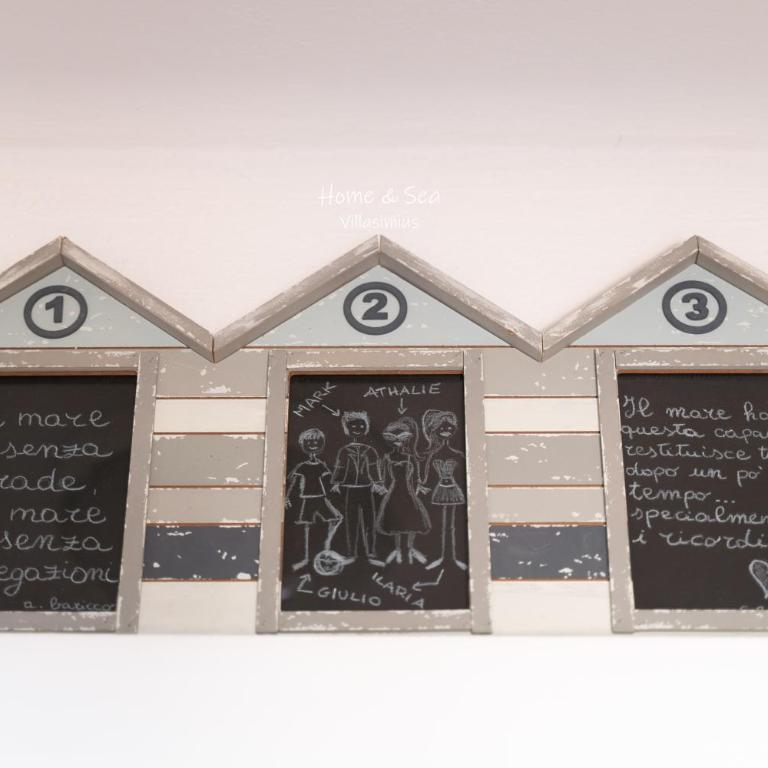 Home & Sea
Villasimius
1
2
3
mare
senza
rade,
mare
senza
egazioni
a. baricco
MARK
ATHALIE
GIULIO
ILARIA
Il mare ha
questa capa
restituisce t
dopo un pò
tempo...
specialmen
i ricordi